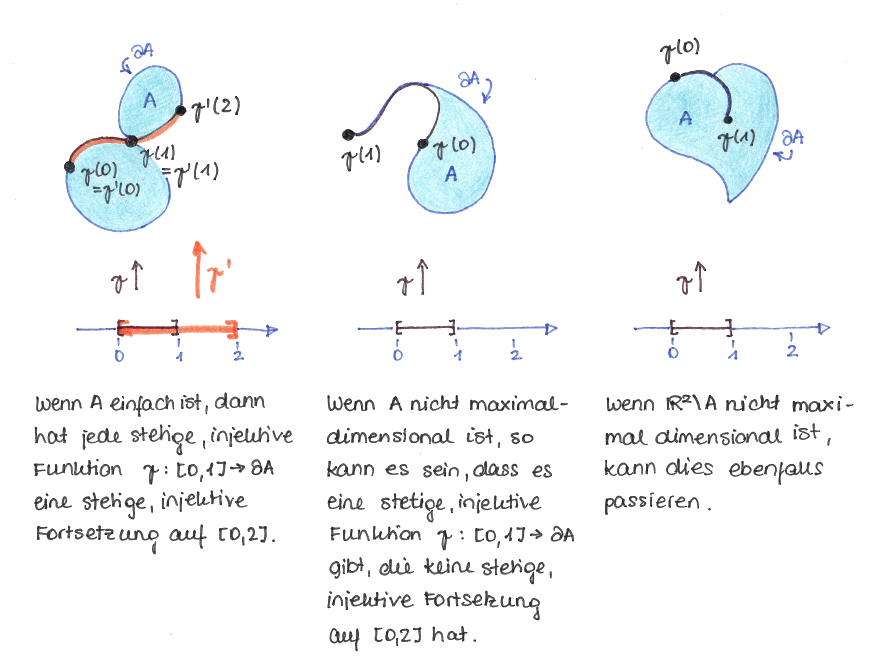 ∂A
A
γ'(2)
γ(1)
=γ'(1)
γ(0)
=γ'(0)
γ
γ'
0 1 2
Wenn A einfach ist, dann
hat jede stetige, injektive
Funktion γ: [0,1] → ∂A
eine stetige, injektive
Fortsetzung auf [0,2].
∂A
γ(1)
γ(0)
A
γ
0 1 2
Wenn A nicht maximal-
dimensional ist, so
kann es sein, dass es
eine stetige, injektive
Funktion γ: [0,1] → ∂A
gibt, die keine stetige,
injektive Fortsetzung
auf [0,2] hat.
γ(0)
A
γ(1)
∂A
γ
0 1 2
Wenn ℝ²\A nicht maxi-
mal dimensional ist,
kann dies ebenfalls
passieren.